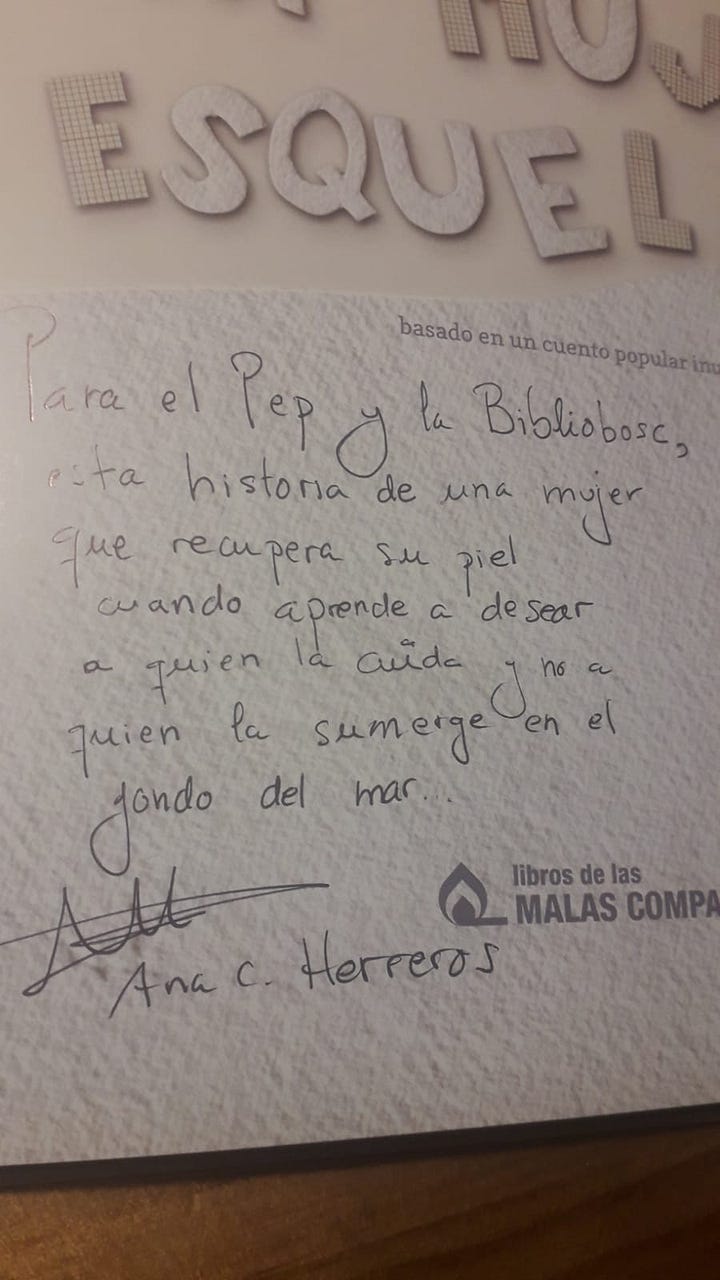 MUJ
ESQUEL
basado en un cuento popular inu
Para el Pep y la Bibliobosc,
esta historia de una mujer
que recupera su piel
cuando aprende a desear
a quien la cuida y no a
quien la sumerge en el
fondo del mar...
libros de las
MALAS COMPA
Ana C. Herreros